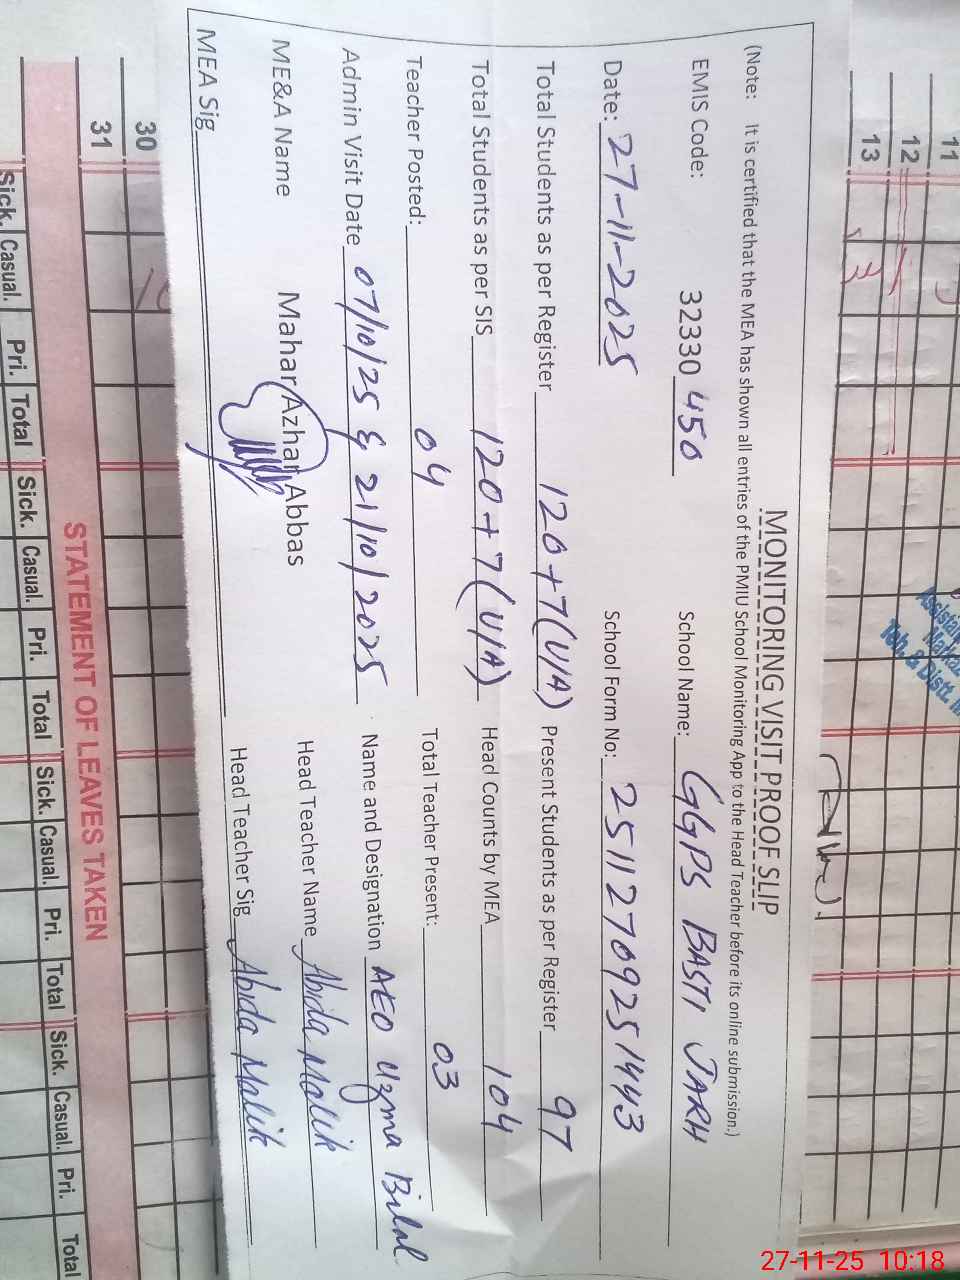 MONITORING VISIT PROOF SLIP
(Note: It is certified that the MEA has shown all entries of the PMIU School Monitoring App to the Head Teacher before its online submission.)
EMIS Code: 32330 450 School Name: GGPS BASTI JARH
Date: 27-11-2025 School Form No: 2511270925 1443
Total Students as per Register 120+7(U/A) Present Students as per Register 97
Total Students as per SIS 120+7(U/A) Head Counts by MEA 104
Teacher Posted: 04 Total Teacher Present: 03
Admin Visit Date 07/10/25 & 21/10/2025 Name and Designation AEO Uzma Bilal
ME&A Name Mahar Azhar Abbas Head Teacher Name Abida Malik
MEA Sig Head Teacher Sig Abida Malik
11
12
13
30
31
STATEMENT OF LEAVES TAKEN
Sick. Casual. Pri. Total Sick. Casual. Pri. Total Sick. Casual. Pri. Total Sick. Casual. Pri. Total
27-11-25 10:18